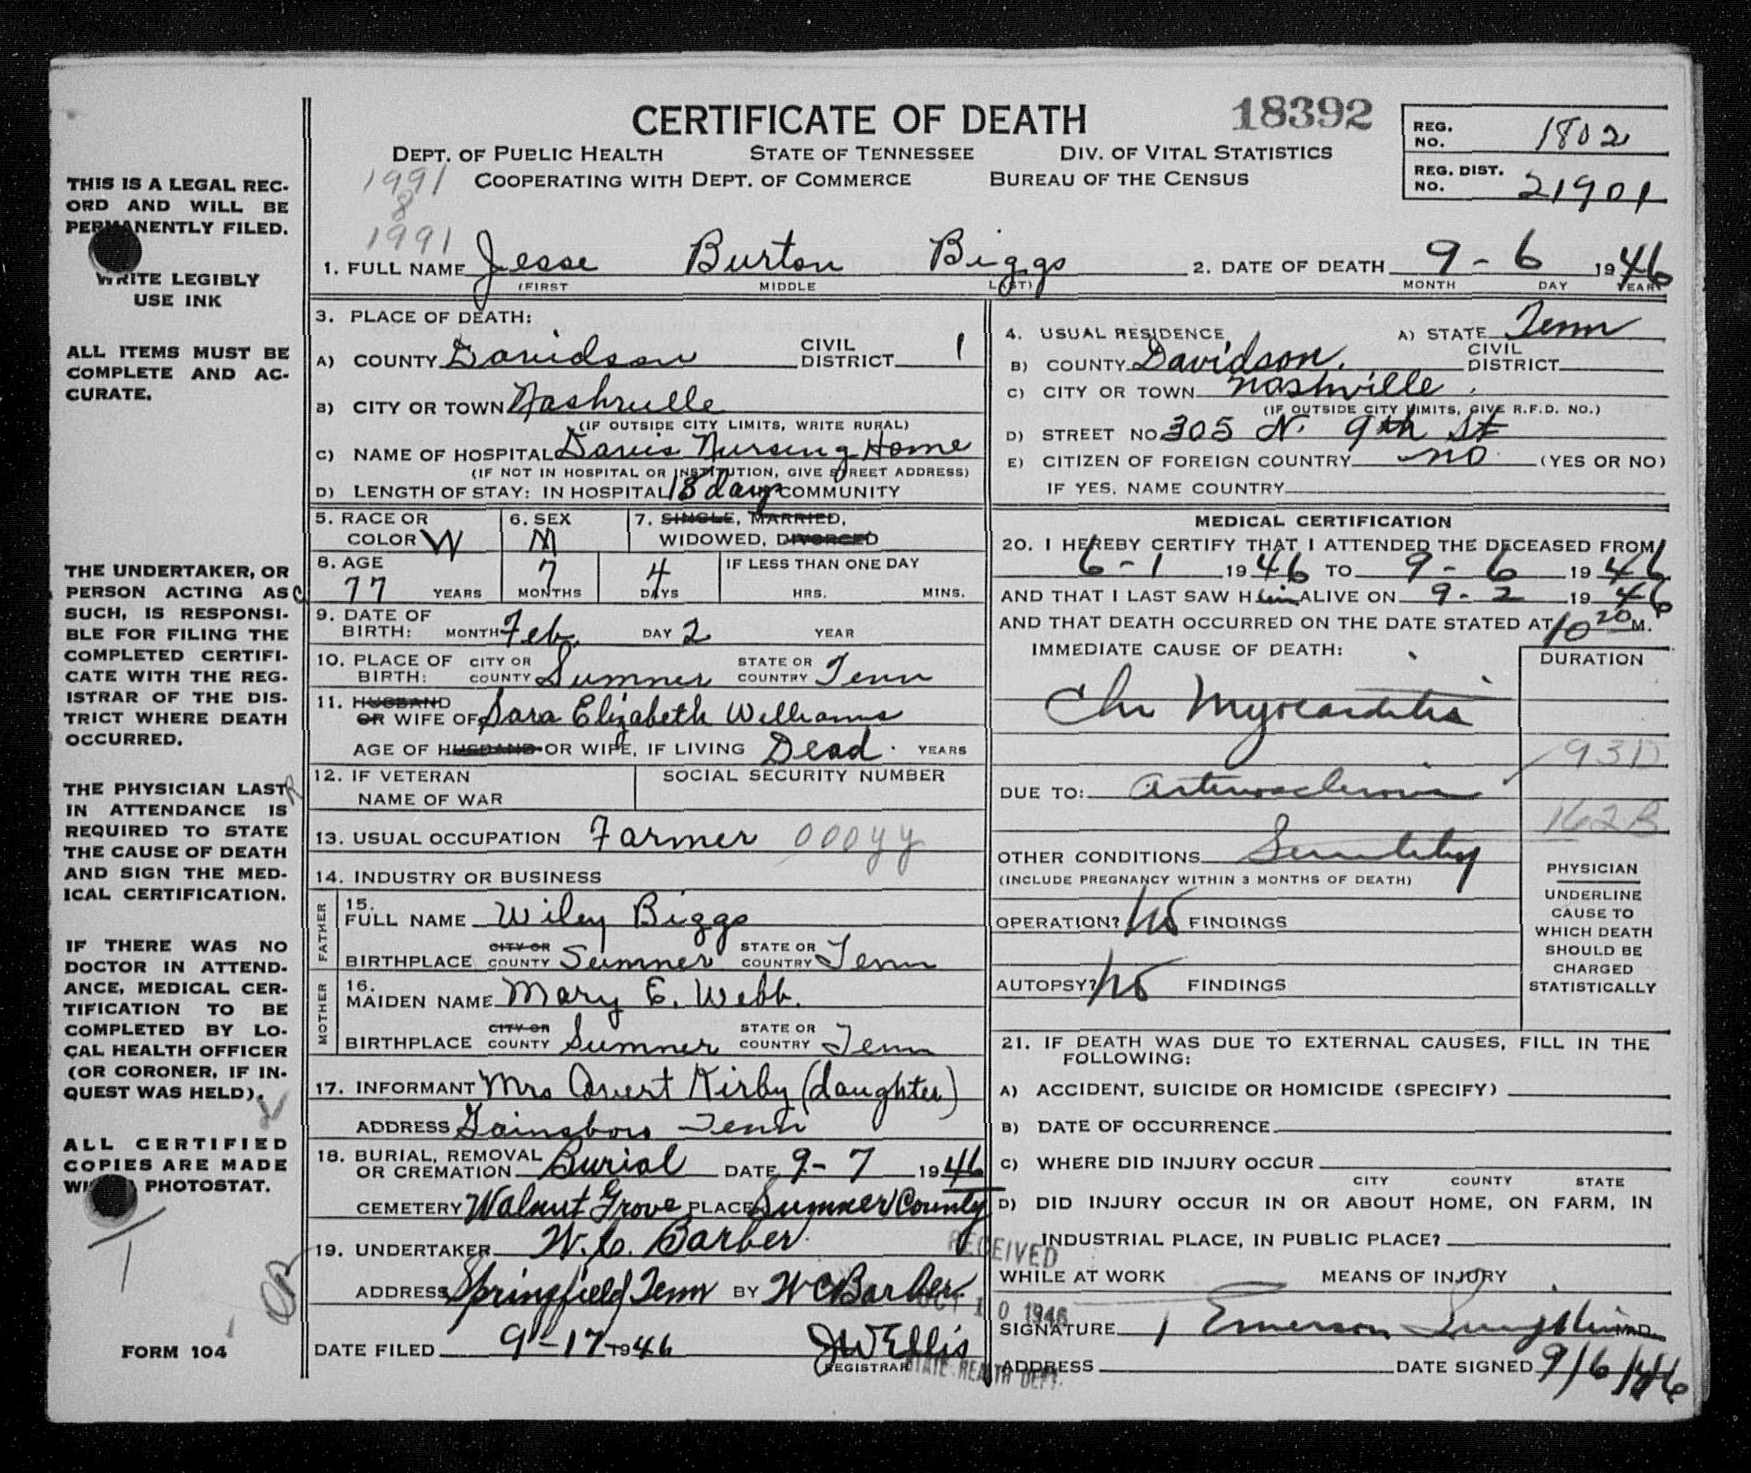 CERTIFICATE OF DEATH 18392
REG. NO. 1802
DEPT. OF PUBLIC HEALTH STATE OF TENNESSEE DIV. OF VITAL STATISTICS
1991 COOPERATING WITH DEPT. OF COMMERCE BUREAU OF THE CENSUS
REG. DIST. NO. 21901
8
1991
1. FULL NAME Jesse Burton Biggs 2. DATE OF DEATH 9-6 1946
(FIRST MIDDLE LAST) MONTH DAY YEAR
THIS IS A LEGAL REC-
ORD AND WILL BE
PERMANENTLY FILED.
WRITE LEGIBLY
USE INK
ALL ITEMS MUST BE
COMPLETE AND AC-
CURATE.
THE UNDERTAKER, OR
PERSON ACTING AS
SUCH, IS RESPONSI-
BLE FOR FILING THE
COMPLETED CERTIFI-
CATE WITH THE REG-
ISTRAR OF THE DIS-
TRICT WHERE DEATH
OCCURRED.
THE PHYSICIAN LAST
IN ATTENDANCE IS
REQUIRED TO STATE
THE CAUSE OF DEATH
AND SIGN THE MED-
ICAL CERTIFICATION.
IF THERE WAS NO
DOCTOR IN ATTEND-
ANCE, MEDICAL CER-
TIFICATION TO BE
COMPLETED BY LO-
CAL HEALTH OFFICER
(OR CORONER, IF IN-
QUEST WAS HELD).
ALL CERTIFIED
COPIES ARE MADE
WITH PHOTOSTAT.
FORM 104
3. PLACE OF DEATH:
A) COUNTY Davidson CIVIL DISTRICT 1
B) CITY OR TOWN Nashville
(IF OUTSIDE CITY LIMITS, WRITE RURAL)
C) NAME OF HOSPITAL Davis Nursing Home
(IF NOT IN HOSPITAL OR INSTITUTION, GIVE STREET ADDRESS)
D) LENGTH OF STAY: IN HOSPITAL 18 days COMMUNITY
5. RACE OR COLOR W 6. SEX M 7. SINGLE, MARRIED, WIDOWED, DIVORCED
8. AGE 77 YEARS 7 MONTHS 4 DAYS IF LESS THAN ONE DAY HRS. MINS.
9. DATE OF BIRTH: MONTH Feb. DAY 2 YEAR
10. PLACE OF BIRTH: CITY OR COUNTY Sumner STATE OR COUNTRY Tenn
11. HUSBAND OR WIFE OF Sara Elizabeth Williams
AGE OF HUSBAND OR WIFE, IF LIVING Dead. YEARS
12. IF VETERAN NAME OF WAR SOCIAL SECURITY NUMBER
13. USUAL OCCUPATION Farmer 000yy
14. INDUSTRY OR BUSINESS
FATHER
15. FULL NAME Wiley Biggs
BIRTHPLACE CITY OR COUNTY Sumner STATE OR COUNTRY Tenn
MOTHER
16. MAIDEN NAME Mary E. Webb.
BIRTHPLACE CITY OR COUNTY Sumner STATE OR COUNTRY Tenn
17. INFORMANT Mrs Kirby (daughter)
ADDRESS Gainsboro Tenn
18. BURIAL, REMOVAL OR CREMATION Burial DATE 9-7 1946
CEMETERY Walnut Grove PLACE Sumner County
19. UNDERTAKER W. C. Barber
ADDRESS Springfield Tenn BY W C Barber
DATE FILED 9-17-1946 JW Ellis
REGISTRAR
4. USUAL RESIDENCE A) STATE Tenn
B) COUNTY Davidson. CIVIL DISTRICT
C) CITY OR TOWN Nashville
(IF OUTSIDE CITY LIMITS, GIVE R.F.D. NO.)
D) STREET NO 305 N. 9th St
E) CITIZEN OF FOREIGN COUNTRY no (YES OR NO)
IF YES, NAME COUNTRY
MEDICAL CERTIFICATION
20. I HEREBY CERTIFY THAT I ATTENDED THE DECEASED FROM
6-1 1946 TO 9-6 1946
AND THAT I LAST SAW Him ALIVE ON 9-2 1946
AND THAT DEATH OCCURRED ON THE DATE STATED AT 10 20 P M.
IMMEDIATE CAUSE OF DEATH: DURATION
Chr Myocarditis
93D
DUE TO: arteriosclerosis
162B
OTHER CONDITIONS Senility
(INCLUDE PREGNANCY WITHIN 3 MONTHS OF DEATH)
OPERATION? no FINDINGS
AUTOPSY? no FINDINGS
PHYSICIAN
UNDERLINE
CAUSE TO
WHICH DEATH
SHOULD BE
CHARGED
STATISTICALLY
21. IF DEATH WAS DUE TO EXTERNAL CAUSES, FILL IN THE
FOLLOWING:
A) ACCIDENT, SUICIDE OR HOMICIDE (SPECIFY)
B) DATE OF OCCURRENCE
C) WHERE DID INJURY OCCUR
CITY COUNTY STATE
D) DID INJURY OCCUR IN OR ABOUT HOME, ON FARM, IN
INDUSTRIAL PLACE, IN PUBLIC PLACE?
WHILE AT WORK MEANS OF INJURY
SIGNATURE Emerson M.D.
ADDRESS DATE SIGNED 9/6/46
RECEIVED
OCT 10 1946
STATE HEALTH DEPT.